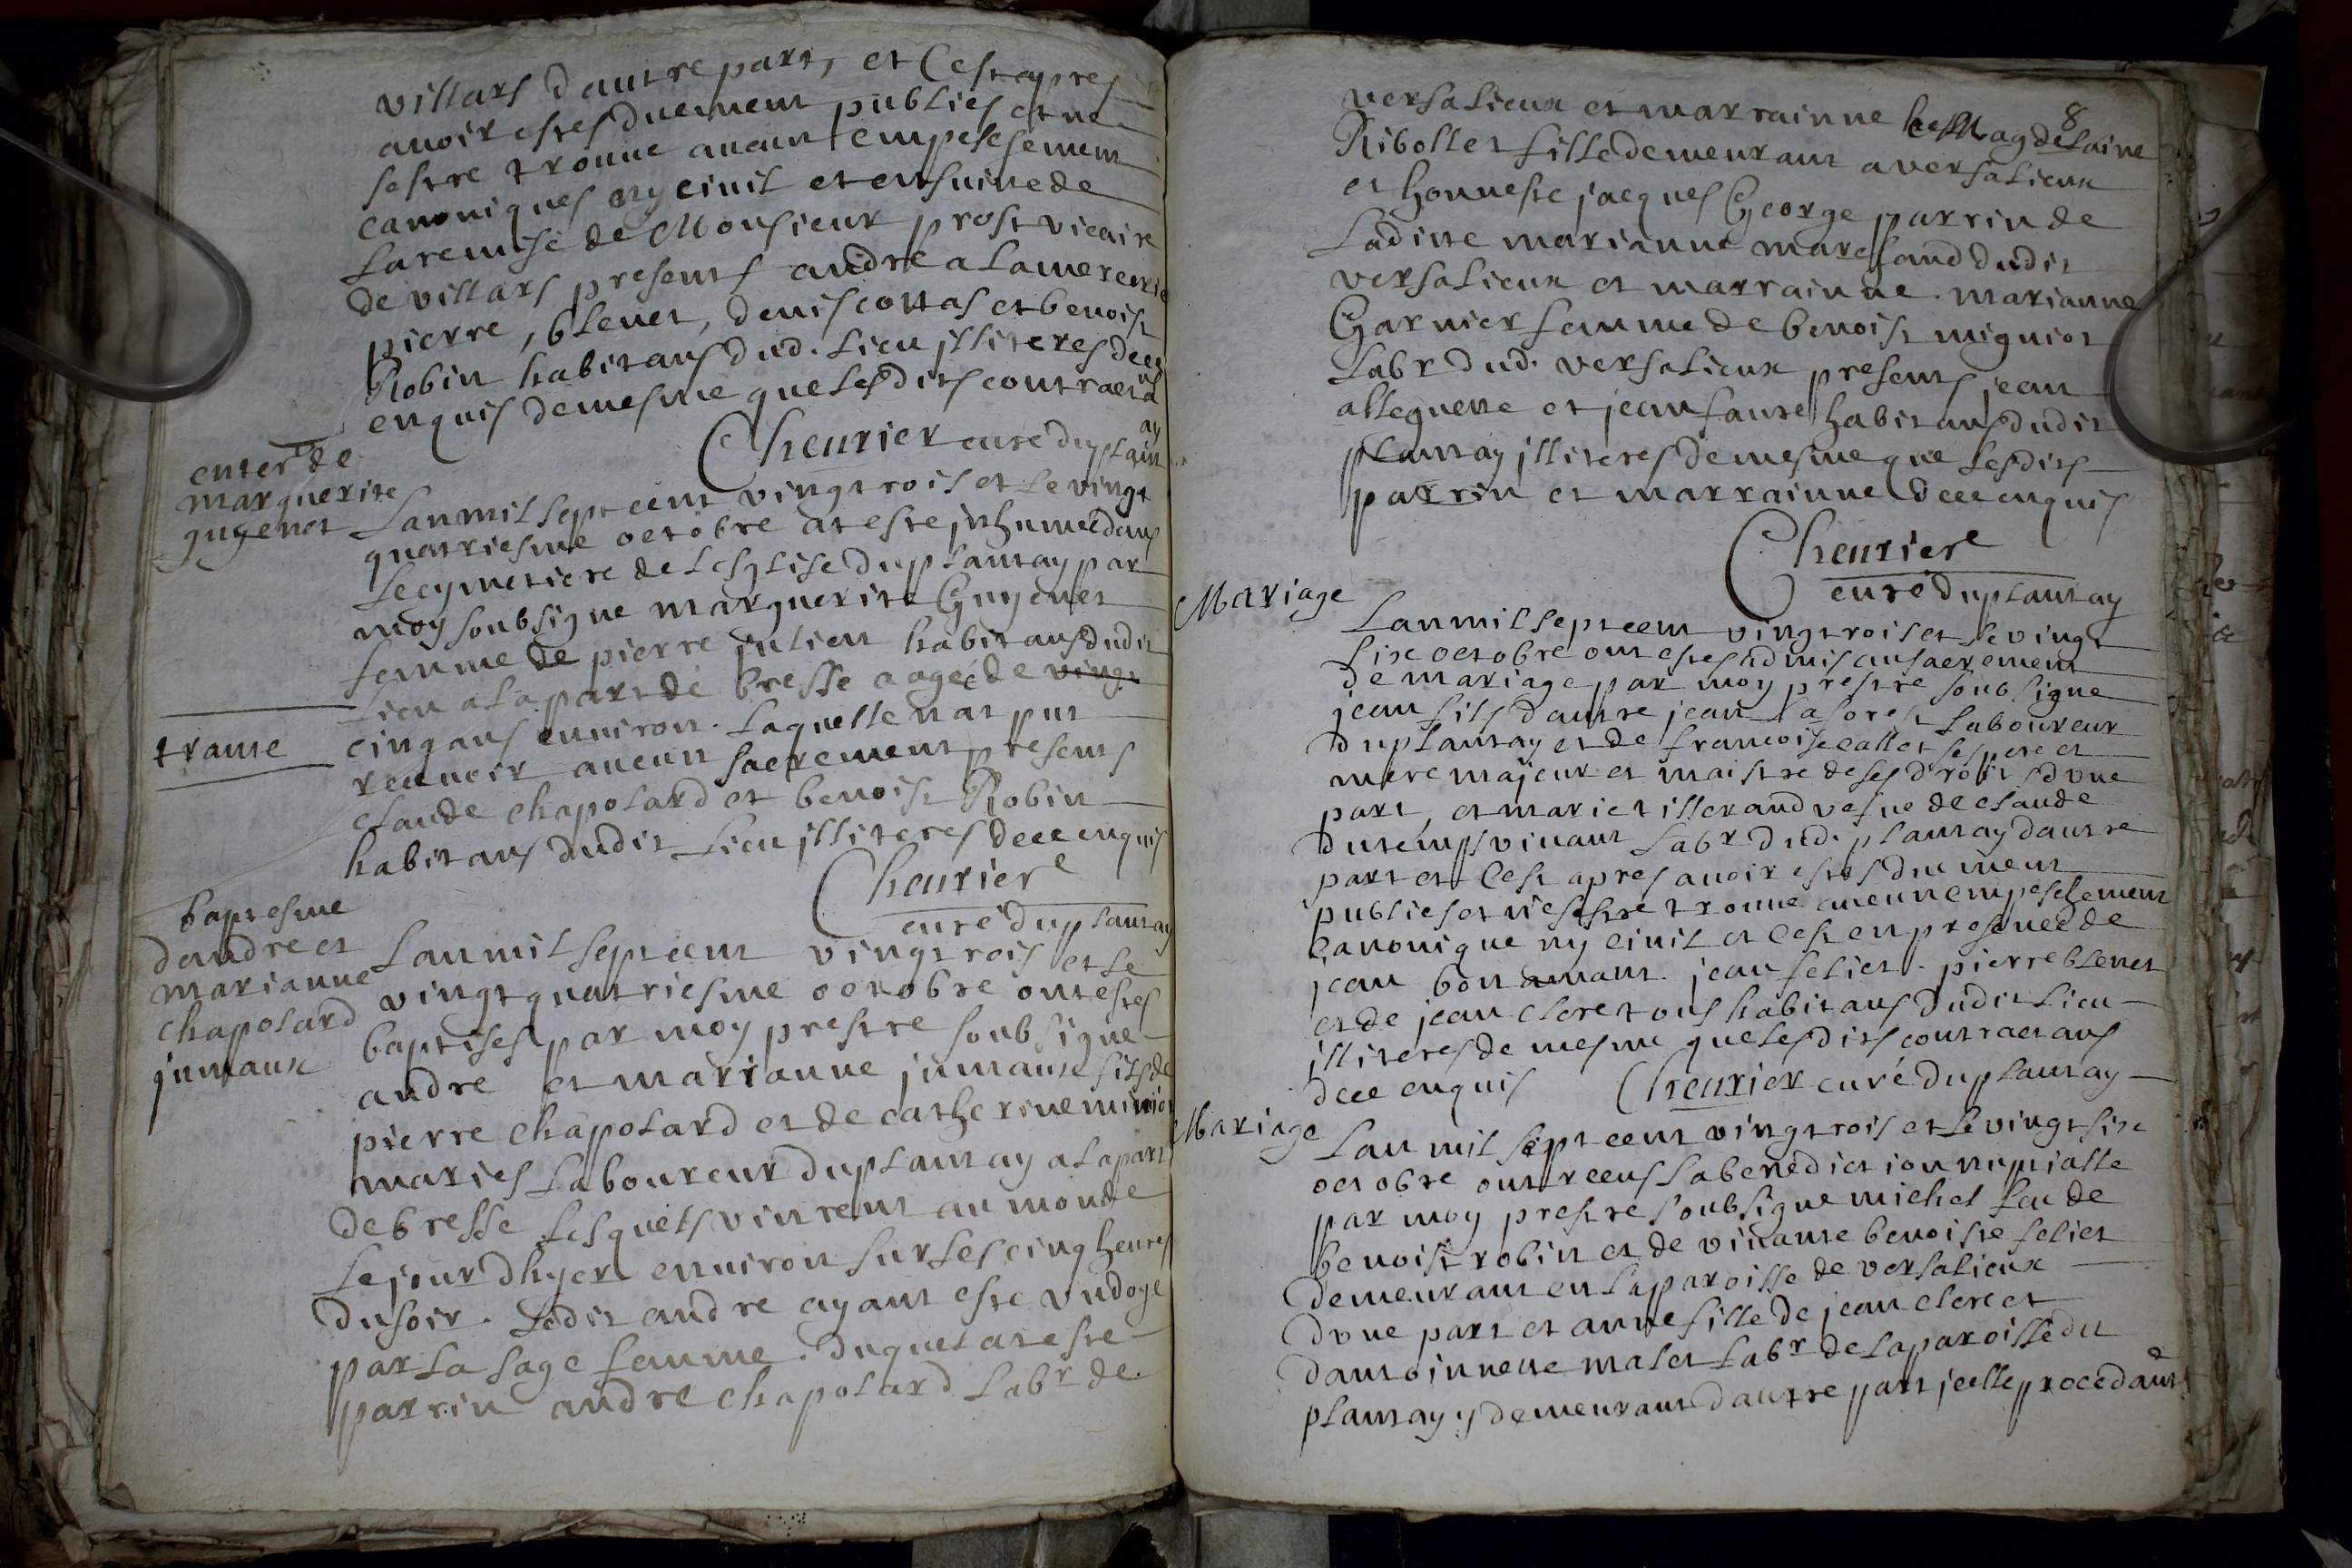 villars dautre part, et Cest apres
avoir estes duement publies et ne
sestre trouve aucun empeschement
canoniques ny civil et ensuitte de
la remise de Monsieur prost vicaire
de villars presents andre a lamercerie
pierre, blenet, denis cottas et benoist
Robin habitans dud. lieu illiteres deee
enquis de mesme que lesdits contractā
Cheurier curé du plantay
enter de
marguerite
guyenet
Lan mil sept cent vingt rois et le vingt
quatriesme octobre at este inhumeé dans
le cymetiere de lesglise du plantay par
moy soubsigne marguerite Guyenet
femme de pierre julien habitans dudit
lieu a la part de bresse aageé de vingt
trante
cinq ans environ. laquelle nat put
recevoir aucun sacrement presents
claude chapolard et benoist Robin
habitans dudit lieu illiteres deee enquis
Cheurier
curé du plantay
baptesme
dandre et
marianne
chapolard
jumaux
Lan mil sept cent vingt rois et le
vingt quatriesme octobre ont estes
baptises par moy prestre soubsigne
andre et marianne jumaux fils de
pierre chapolard et de catherine mi
maries laboureur du plantay a la part
de bresse lesquels vinrent au monde
le jour dhyer environ sur les cinq heures
du soir. ledit andre ayant este vndoye
par la sage femme. duquel at este
parrin andre chapolard labr de
8
versalieux et marrainne Magdelaine
Ribollet fille demeurant a versalieux
et honneste jacques George parrin de
ladite marianne marchand dudit
versalieux et marrainne. marianne
Garnier femme de benoist migniot
labr dud. versalieux presents jean
alleguette et jean faure habitans dudit
plantay illiteres de mesme que lesdits
parrin et marrainne deee enquis
Cheurier
curé du plantay
Mariage
Lan mil sept cent vingt rois et le vingt
six octobre ont estes admis au sacrement
de mariage par moy prestre soubsigne
jean fils dautre jean laforest laboureur
du plantay et de francoise callet ses pere et
mere majeur et maistre de ses droits dvne
part, et marie tillerand vefve de claude
dutemps vivant labr dud. plantay dautre
part et Cest apres avoir estes duement
publies et ne sestre trouve aucun empeschement
Canonique ny civil et Cest en presence de
jean bon amant. jean feliet. pierre blenet
et de jean clere tous habitans dudit lieu
illiteres de mesme que lesdits contractans
deee enquis Cheurier curé du plantay
Mariage
Lan mil sept cent vingt rois et le vingt six
octobre ont receus la benediction nuptialle
par moy prestre soubsigne michel feu de
benoist robin et de vivante benoiste feliet
demeurant en la paroisse de versalieux
dvne part et anne fille de jean clere et
dantoinnette malet labr de la paroisse du
plantay y demeurant dautre part jcelle procedant